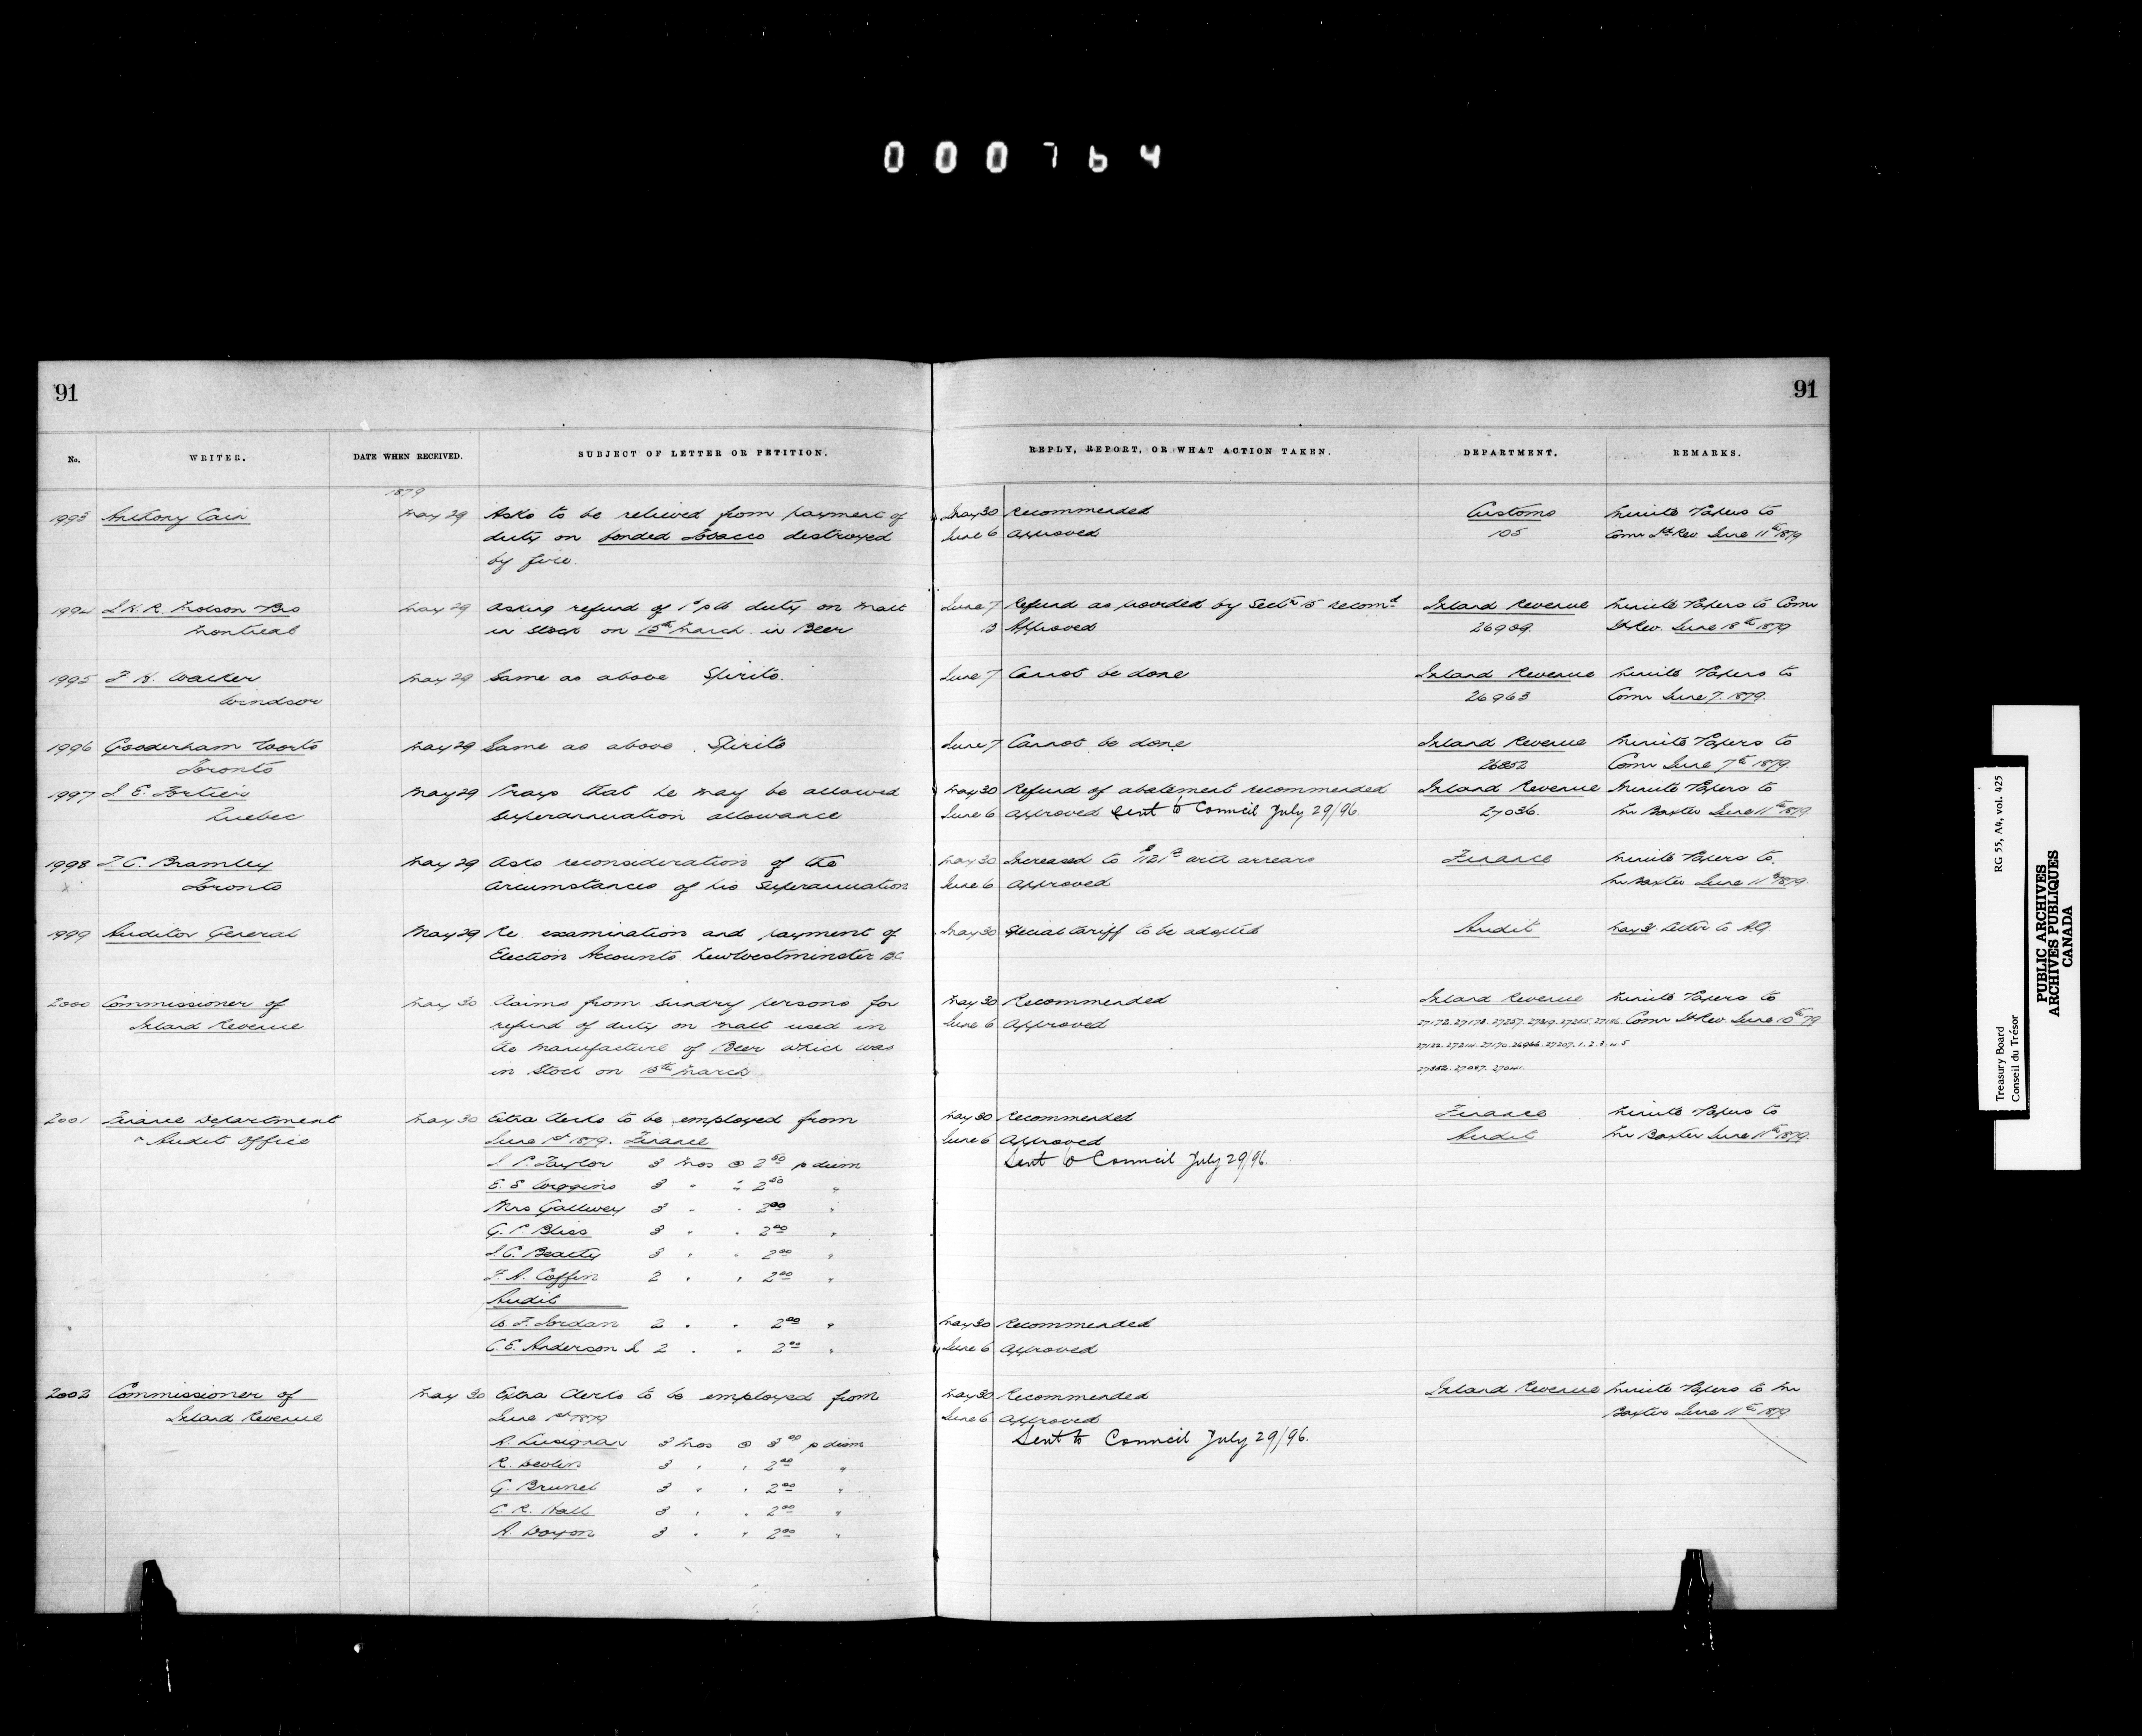 000764
91
91
No. WRITER. DATE WHEN RECEIVED. SUBJECT OF LETTER OR PETITION. REPLY, REPORT, OR WHAT ACTION TAKEN. DEPARTMENT. REMARKS.
1879
1993 Anthony Cain May 29 Asks to be relieved from payment of May 30 Recommended Customs Minute Papers to
duty on bonded Tobacco destroyed June 6 Approved 105 Comr Id Rev. June 11th 1879
by fire.
1994 J H. R. Molson Bro May 29 Asking refund of 1c p lb duty on Malt June 7 Refund as provided by Sectn 15 recomd Inland Revenue Minute Papers to Comr
Montreal in stock on 15th March in Beer 13 Approved 26909. Id Rev. June 18th 1879
1995 F. H. Walker May 29 Same as above Spirits. June 7 Cannot be done Inland Revenue Minute Papers to
Windsor 26963 Comr June 7. 1879.
1996 Gooderham Worts May 29 Same as above. Spirits June 7 Cannot be done Inland Revenue Minute Papers to
Toronto 26852 Comr June 7th 1879.
1997 J. E. Fortier May 29 Prays that he may be allowed May 30 Refund of abatement recommended Inland Revenue Minute Papers to
Quebec superannuation allowance June 6 Approved Sent to Council July 29/96. 27036. Mr Baxter June 11th 1879.
1998 F. C. Bramley May 29 Asks reconsideration of the May 30 Increased to $112 with arrears Finance Minute Papers to.
Toronto circumstances of his Superannuation June 6 Approved Mr Baxter June 11th 1879.
1999 Auditor General May 29 Re examination and payment of May 30 Special tariff to be adopted Audit May 31. Letter to A.G.
Election Accounts New Westminster B.C
2000 Commissioner of May 30 Claims from sundry persons for May 30 Recommended Inland Revenue Minute Papers to
Inland Revenue refund of duty on malt used in June 6 Approved 27172. 27178. 27257. Comr Id Rev. June 10th 79
the manufacture of Beer which was 27122. 27214. 27170. 26966. 27207. 1. 2. 3. 4 5
in Stock on 15th March 27352. 27087. 27041.
2001 Finance Department May 30 Extra Clerks to be employed from May 30 Recommended Finance Minute Papers to
" Audit Office June 1st 1879. Finance June 6 Approved Audit Mr Baxter June 11th 1879.
J. P. Taylor 3 mos @ 2.50 p diem Sent to Council July 29/96.
E. S Wiggins 3 " " 2.50 "
Mrs Gallwey 3 " " 2.00 "
G. P. Bliss 3 " " 2.00 "
J. C. Beatty 3 " " 2.00 "
F. A. Coffin 2 " " 2.00 "
Audit
W. F. Jordan 2 " " 2.00 " May 30 Recommended
C. E. Anderson Jr 2 " " 2.00 " June 6 Approved
2002 Commissioner of May 30 Extra Clerks to be employed from May 30 Recommended Inland Revenue Minute Papers to Mr
Inland Revenue June 1st 1879 June 6 Approved Baxter June 11th 1879
A. Lusignan 3 mos @ 3.00 p diem Sent to Council July 29/96.
R. Devlin 3 " " 2.00 "
G. Brunel 3 " " 2.00 "
C. R. Hall 3 " " 2.00 "
A. Doyon 3 " " 2.00 "
Treasury Board RG 55, A4, vol. 425
Conseil du Trésor
PUBLIC ARCHIVES
ARCHIVES PUBLIQUES
CANADA